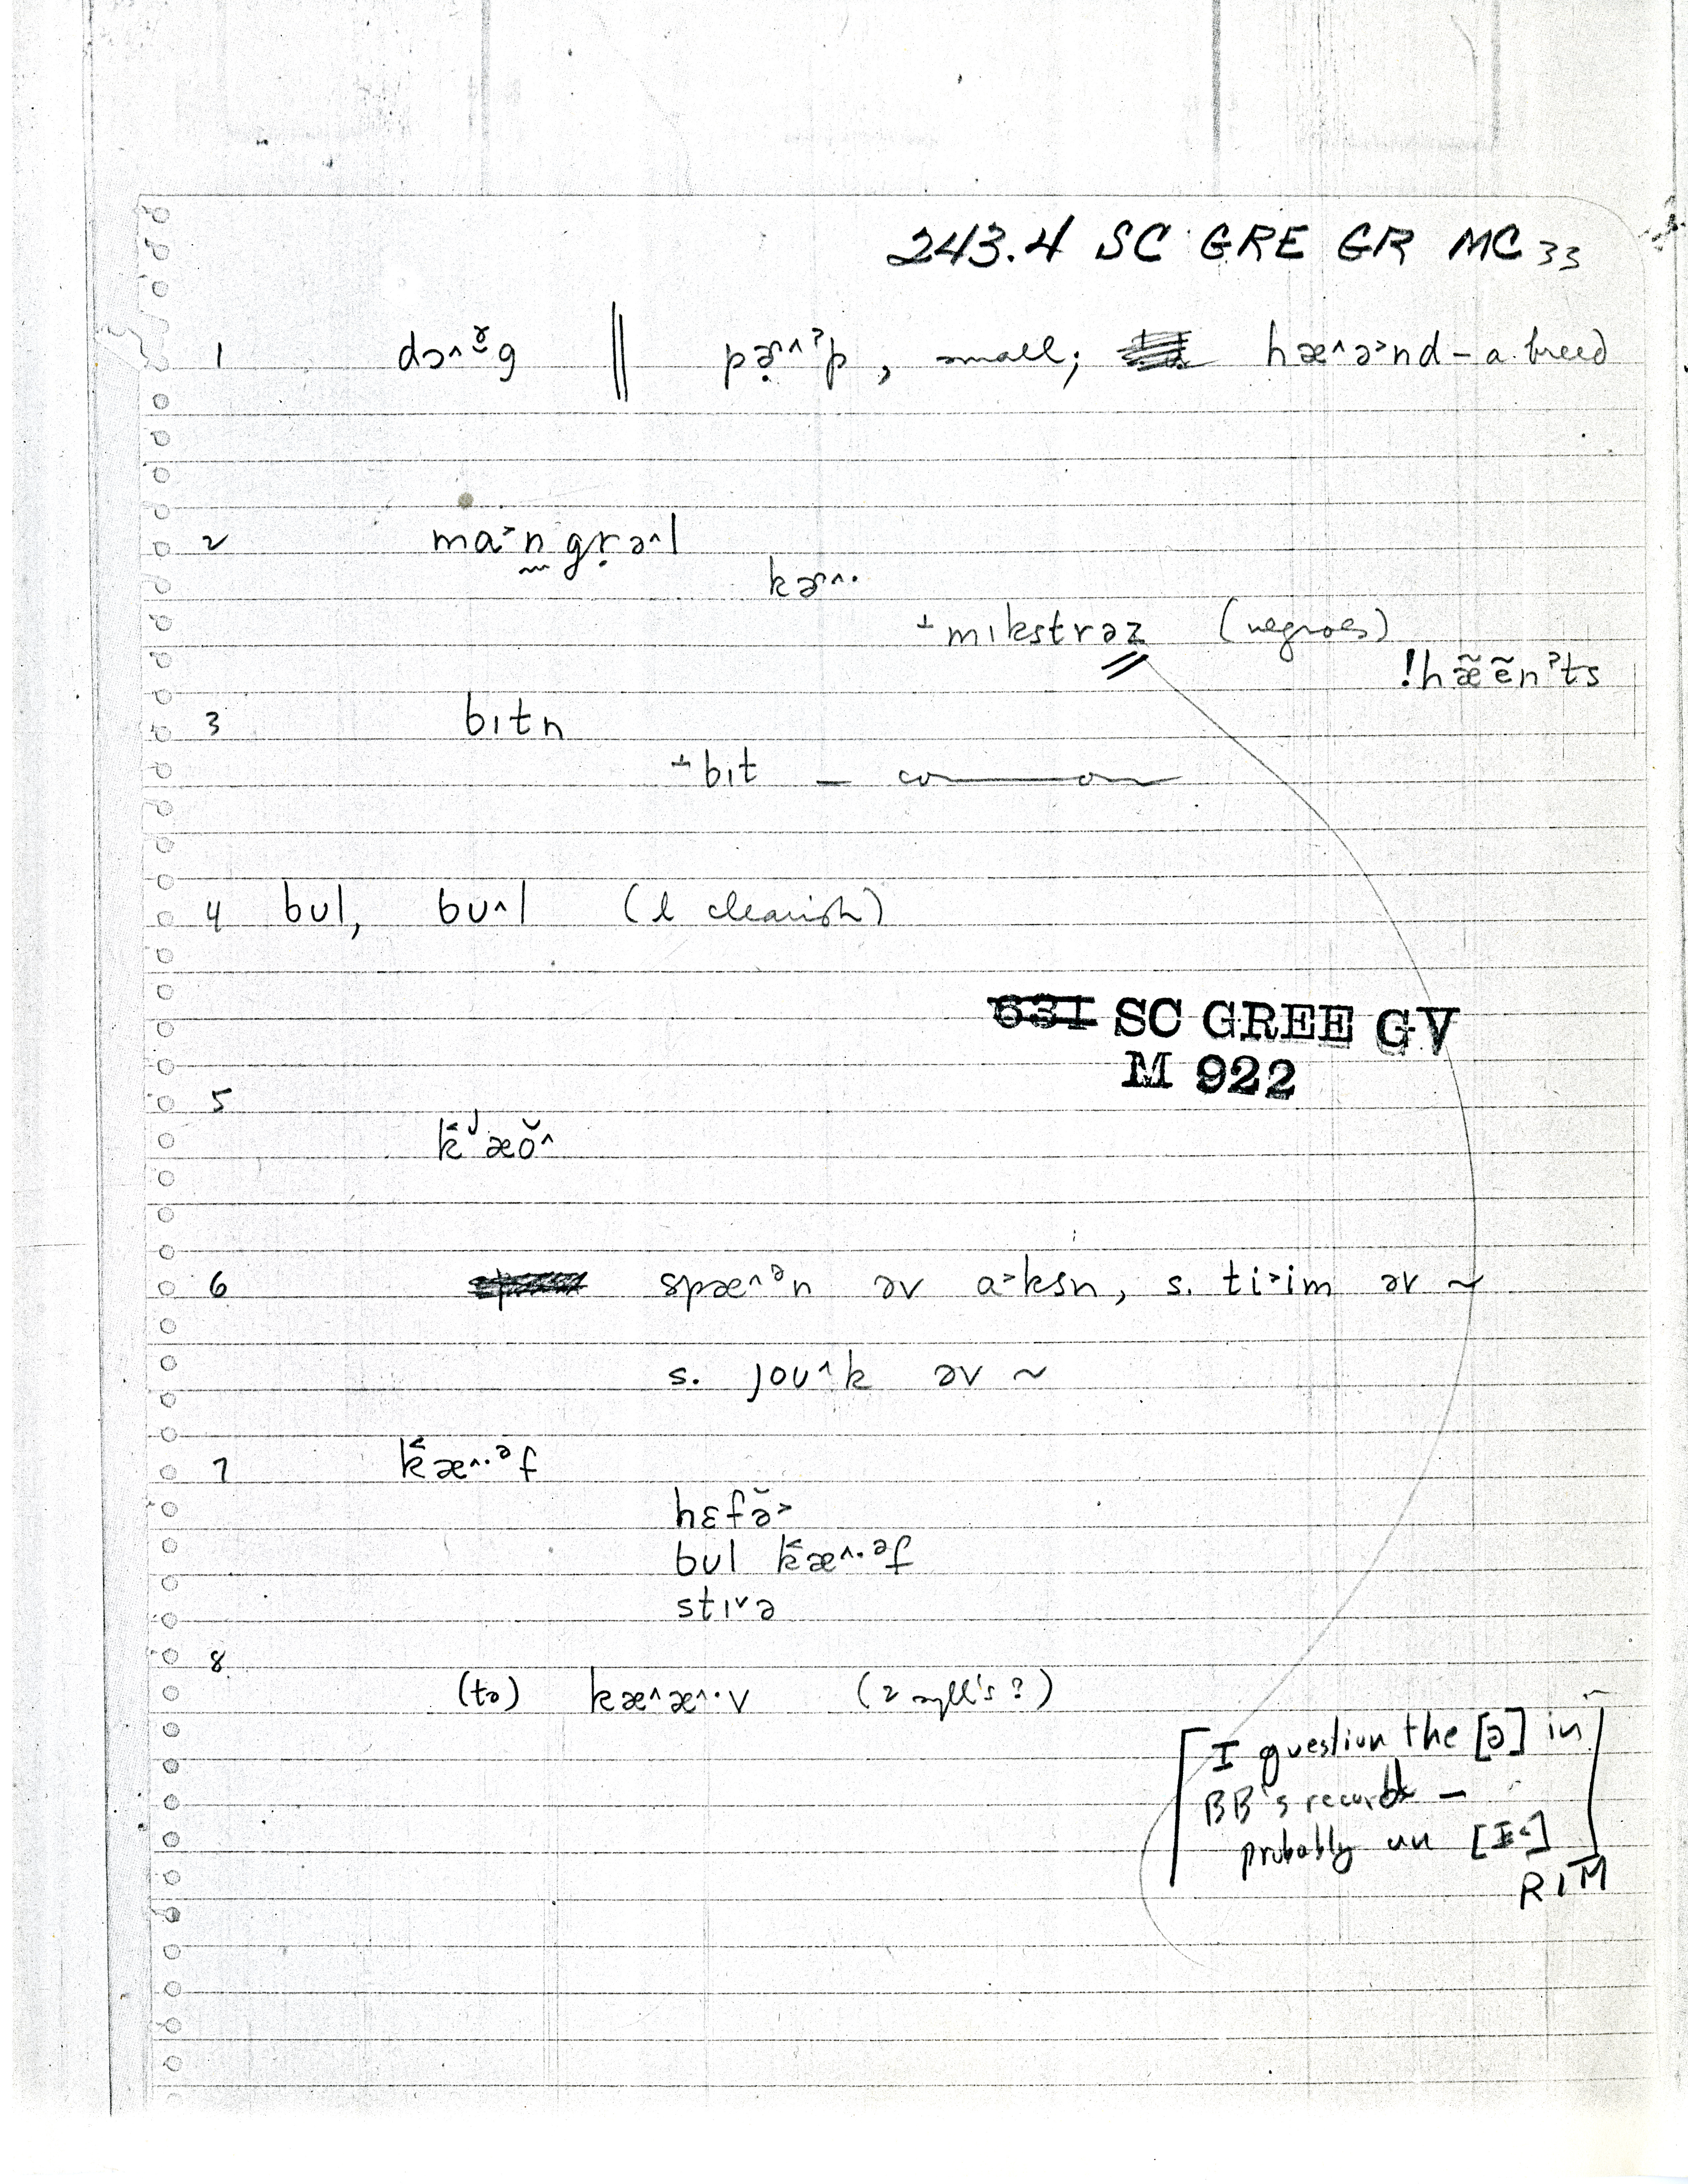 243.4 SC GRE GR MC 33
1 dɔ˄ɤ̆g ‖ pə̣˞˄ˀp, small; hæ˄ə˃nd – a breed
2 ma˃n̰gṛə˄l
kə˞˄·
⊥mɪkstrəz (negroes)
!hæ̃ẽnˀts
3 bɪtn
⊥bɪt – common
4 bʊl, bʊ˄l (l clearish)
631 SC GREE GV
M 922
5
k̬ʲæŏ˄
6 spæ˄ᵊn əv a˃ksn, s. ti˃im əv ~
s. joʊ˄k əv ~
7 k̬æ˄·ᵊf
hɛfə̆˃
bʊl k̬æ˄·ᵊf
stɪ˅ə
8 (tə) kæ˄æ˄·v (2 syll's?)
[I question the [ə] in
BB's record –
probably an [ɪ˂]
RIM]